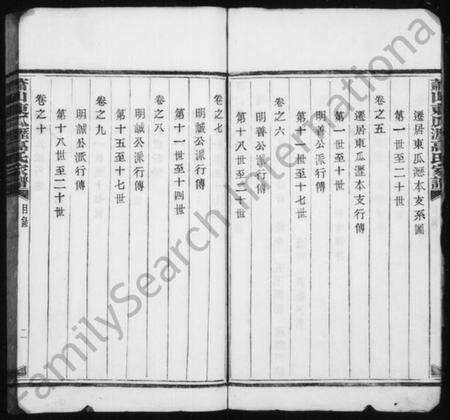 蕭山東瓜瀝高氏家譜
遷居東瓜瀝本支系圖
第一世至二十世
卷之五
遷居東瓜瀝本支行傳
第一世至十世
第十一世至十七世
卷之六
明善公派行傳
第十八世至二十世
卷之七
明誠公派行傳
第十一世至十四世
卷之八
明誠公派行傳
第十五至十七世
卷之九
明誠公派行傳
第十八世至二十世
卷之十
蕭山東瓜瀝高氏家譜
目錄
二
FamilySearch International